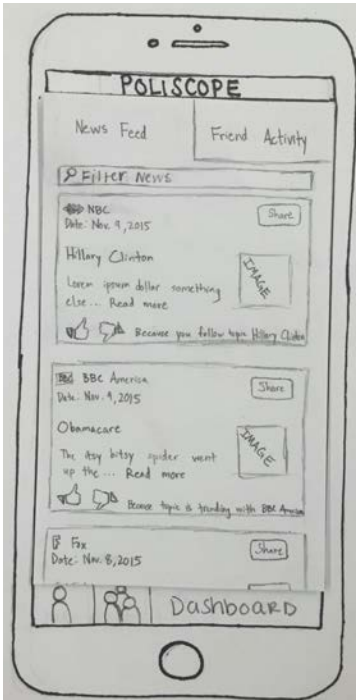 POLISCOPE
News Feed
Friend Activity
Filter News
NBC
Share
Date: Nov. 9, 2015
Hillary Clinton
IMAGE
Lorem ipsum dollar something
else... Read more
Because you follow topic Hillary Clinton
BBC America
Share
Date: Nov. 9, 2015
Obamacare
IMAGE
The itsy bitsy spider went
up the ... Read more
Because topic is trending with BBC America
Fox
Share
Date: Nov. 8, 2015
Dashboard